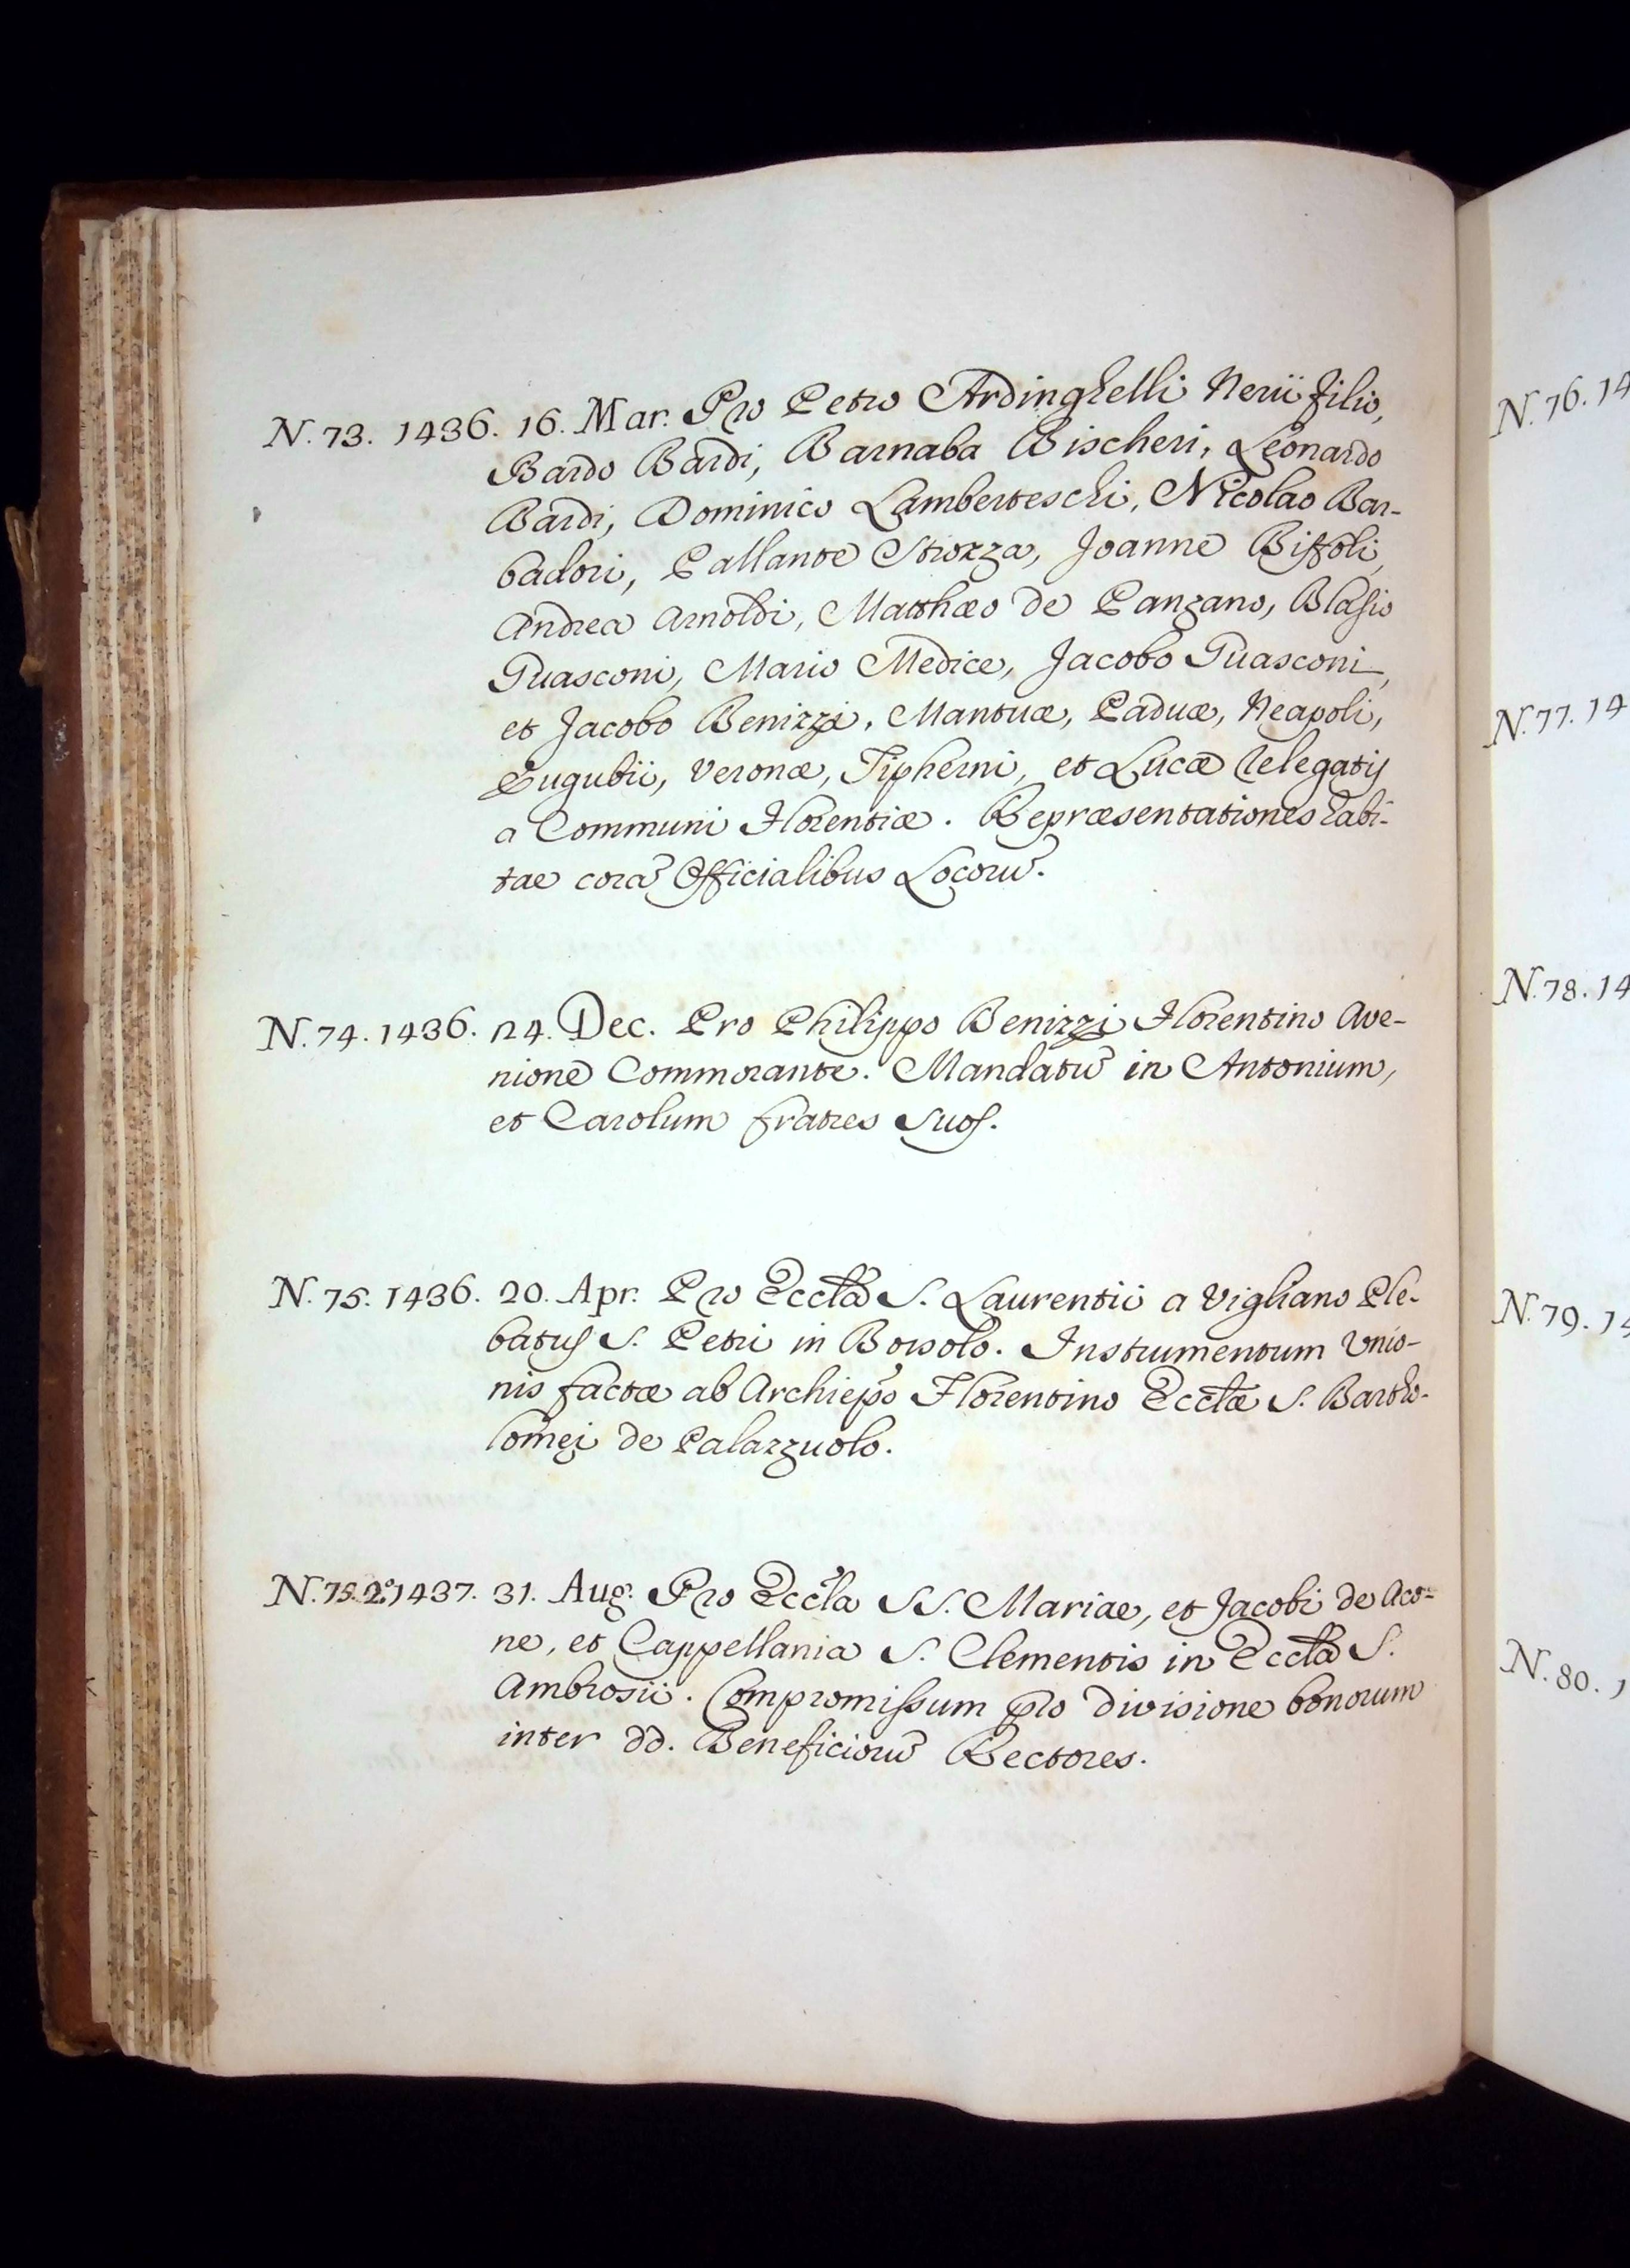 N. 73. 1436. 16. Mar. Pro Petro Ardinghelli Nerii filio,
Bardo Bardi, Barnaba Bischeri, Leonardo
Bardi, Dominico Lamberteschi, Nicolao Bar-
badori, Pallante Strozza, Joanne Biffoli,
Andrea Arnoldi, Matthæo de Panzano, Blasio
Guasconi, Mario Medice, Jacobo Guasconi,
et Jacobo Benizzi, Mantuæ, Paduæ, Neapoli,
Eugubii, Veronæ, Tipherni, et Lucæ relegatis
a Communi Florentiæ. Repræsentationes habi-
tae corã Officialibus Locorũ.
N. 74. 1436. 24. Dec. Pro Philippo Benizzi Florentino Ave-
nione Commorante. Mandatũ in Antonium,
et Carolum fratres suos.
N. 75. 1436. 20. Apr. Pro Eccla S. Laurentii a Vigliano Ple-
batus S. Petri in Bossolo. Instrumentum Unio-
nis factæ ab Archiepo Florentino Ecclæ S. Bartho-
lomei de Palazzuolo.
N. 75. 2º 1437. 31. Aug. Pro Eccla SS. Mariae, et Jacobi de Aco-
ne, et Cappellania S. Clementis in Eccla S.
Ambrosii. Compromissum pro divisione bonorum
inter dd. Beneficiorũ Rectores.
N. 76. 14
N. 77. 14
N. 78. 14
N. 79. 14
N. 80. 1